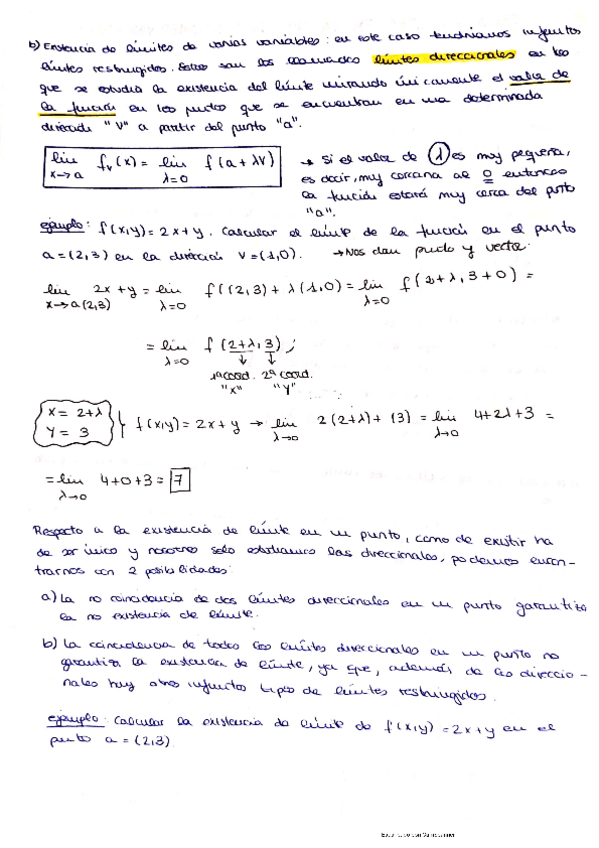 b) Existencia de límites de varias variables: en este caso tendríamos infinitos
límites restringidos. Estos son los llamados límites direccionales en los
que se estudia la existencia del límite mirando únicamente el valor de
la función en los puntos que se encuentran en una determinada
dirección "v" a partir del punto "a".
lim x→a fᵥ(x) = lim λ=0 f(a + λv) → Si el valor de λ es muy pequeña,
es decir, muy cercana al 0 entonces
la función estará muy cerca del pto
"a".
ejemplo: f(x,y) = 2x + y. Calcular el límite de la función en el punto
a = (2,3) en la dirección v = (1,0). → Nos dan punto y vector.
lim x→a(2,3) 2x + y = lim λ=0 f((2,3) + λ(1,0) = lim λ=0 f(2+λ, 3+0) =
= lim λ=0 f(2+λ, 3) ;
1ª coord. 2ª coord.
"x" "y"
x = 2+λ
y = 3
f(x,y) = 2x + y → lim λ→0 2(2+λ) + (3) = lim λ→0 4+2λ+3 =
= lim λ→0 4+0+3 = 7
Respecto a la existencia de límite en un punto, como de existir ha
de ser único y nosotros solo estudiamos las direccionales, podemos encon-
trarnos con 2 posibilidades:
a) La no coincidencia de dos límites direccionales en un punto garantiza
la no existencia de límite.
b) La coincidencia de todos los límites direccionales en un punto no
garantiza la existencia de límite, ya que, además de los direccio-
nales hay otros infinitos tipos de límites restringidos.
ejemplo: Calcular la existencia de límite de f(x,y) = 2x + y en el
punto a = (2,3)